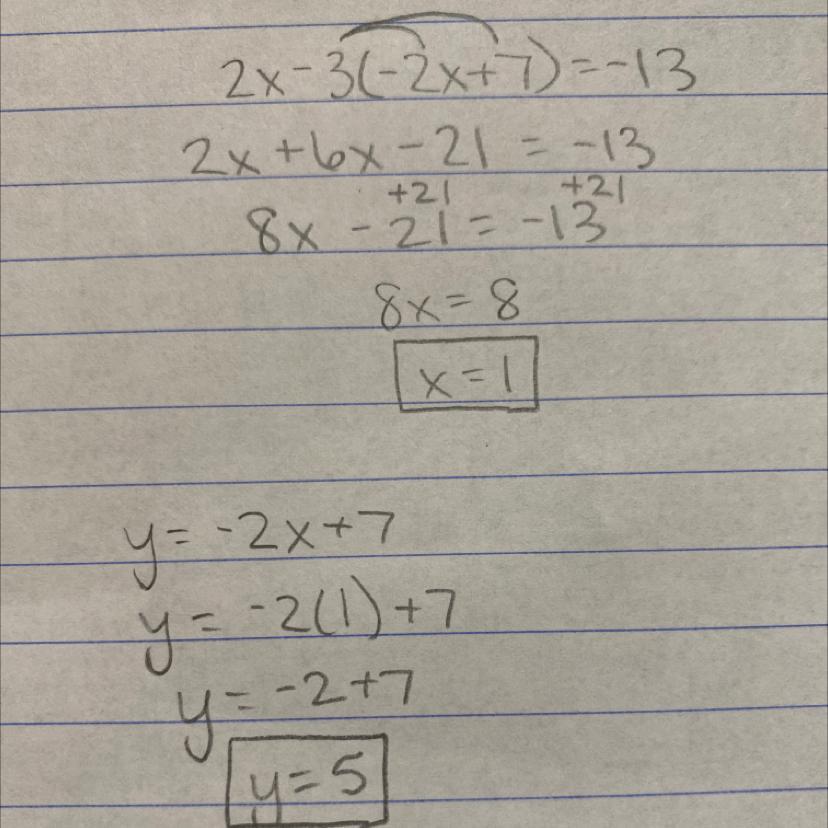 2x-3(-2x+7)=-13
2x+6x-21 = -13
+21 +21
8x - 21 = -13
8x = 8
x = 1
y = -2x+7
y = -2(1)+7
y = -2+7
y = 5